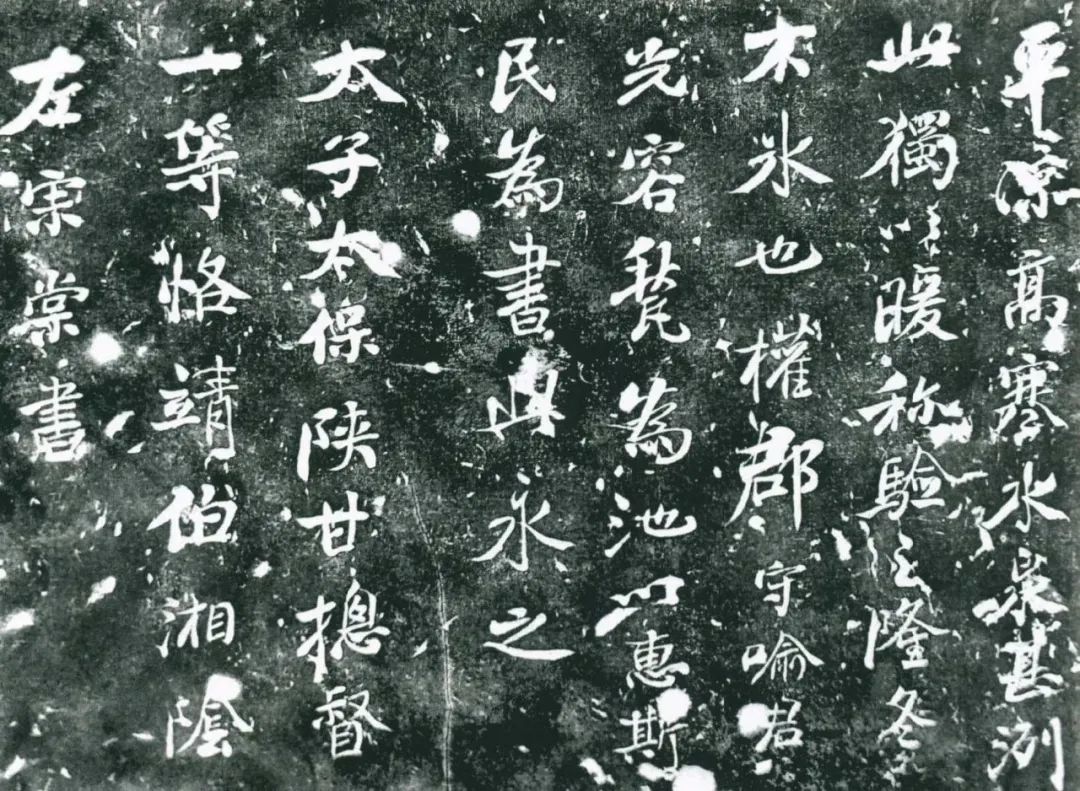 平涼高寒水泉甚洌
此獨以暖称驗隆冬
不冰也權郡守喻君
光容甃為池以惠斯
民為書此永之
太子太保陝甘摠督
一等恪靖伯湘陰
左宗棠書